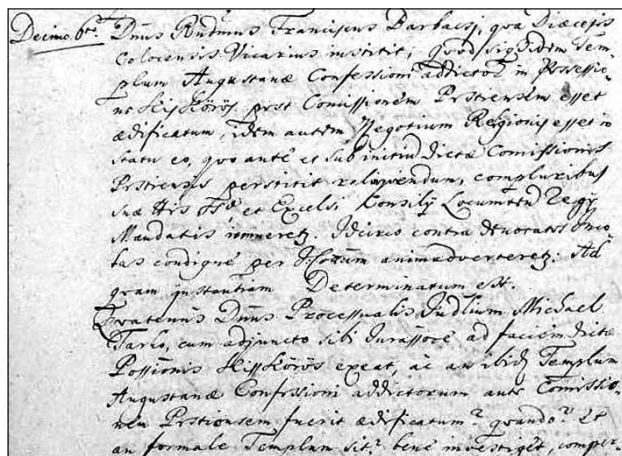 Decimo 6to. Dnus Rndmus Franciscus Barkacsj, qua Diæcesis
Colocensis Vicarius institit; quod siquidem Tem
plum Augustanæ Confessioni addictor in Possessio
ne Kis Körös, post Comissionem Pestiensem esset
ædificatum, idem autem Negotium Regionis esset in
statu eo, quo ante et sub initiu dictæ Comissionis
Pestiensis perstitit relinquendum, compluribus
suæ et Excelsi Consilij Locumten Regij
Mandatis inhæretq. Idcirco contra
tas condigne per animadverteretq. Ad
quam instantiam Determinatum est.
Qvatenus Dnus Processualis Judlium Michael
Tarko, cum adjuncto sibi Jurassore ad faciem dictæ
Possionis Kiss Körös exeat, ac an ibid Templum
Augustanæ Confessioni addictorum ante Comissio
nem Pestiensem fuerit ædificatum? quando? Et
an formale Templum sit? bene investiget, comper